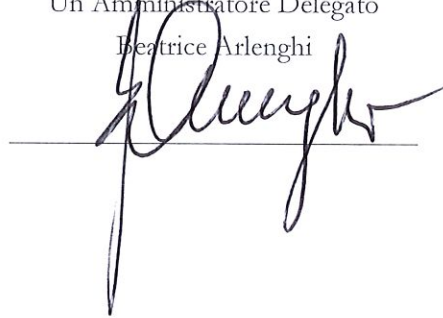 Un Amministratore Delegato
Beatrice Arlenghi